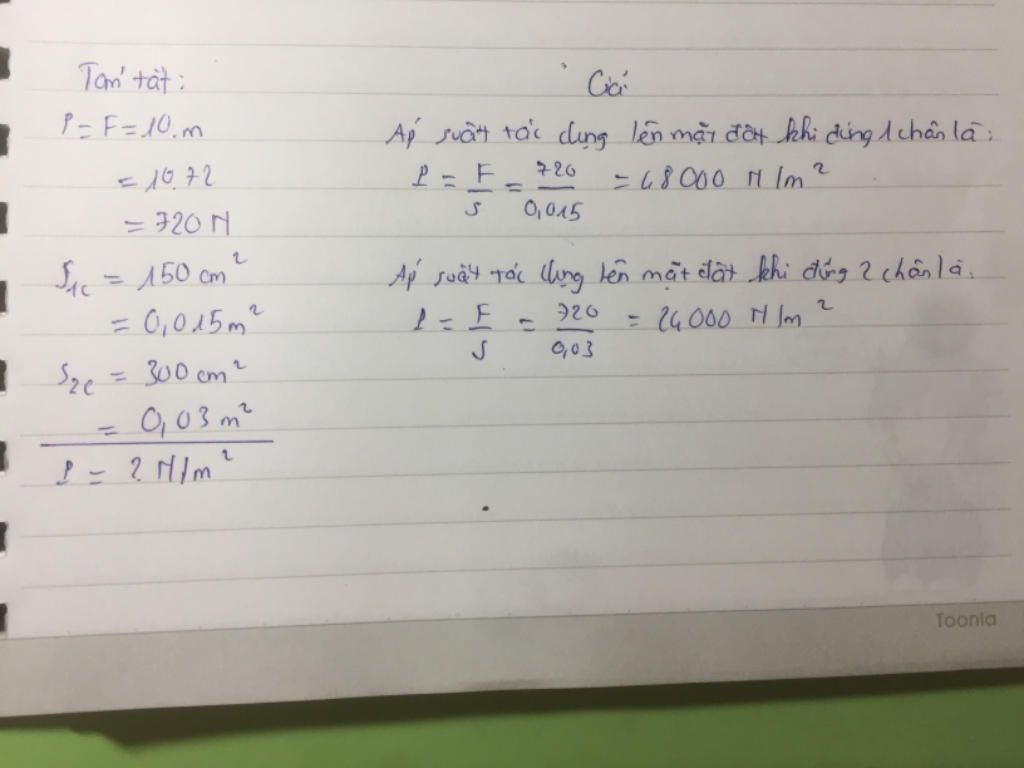 Tóm tắt:
P = F = 10.m
= 10.72
= 720 N
S1c = 150 cm²
= 0,015 m²
S2c = 300 cm²
= 0,03 m²
P = ? N/m²
Giải
Áp suất tác dụng lên mặt đất khi đứng 1 chân là:
P = F/S = 720/0,015 = 48000 N/m²
Áp suất tác dụng lên mặt đất khi đứng 2 chân là.
P = F/S = 720/0,03 = 24000 N/m²
Toonla